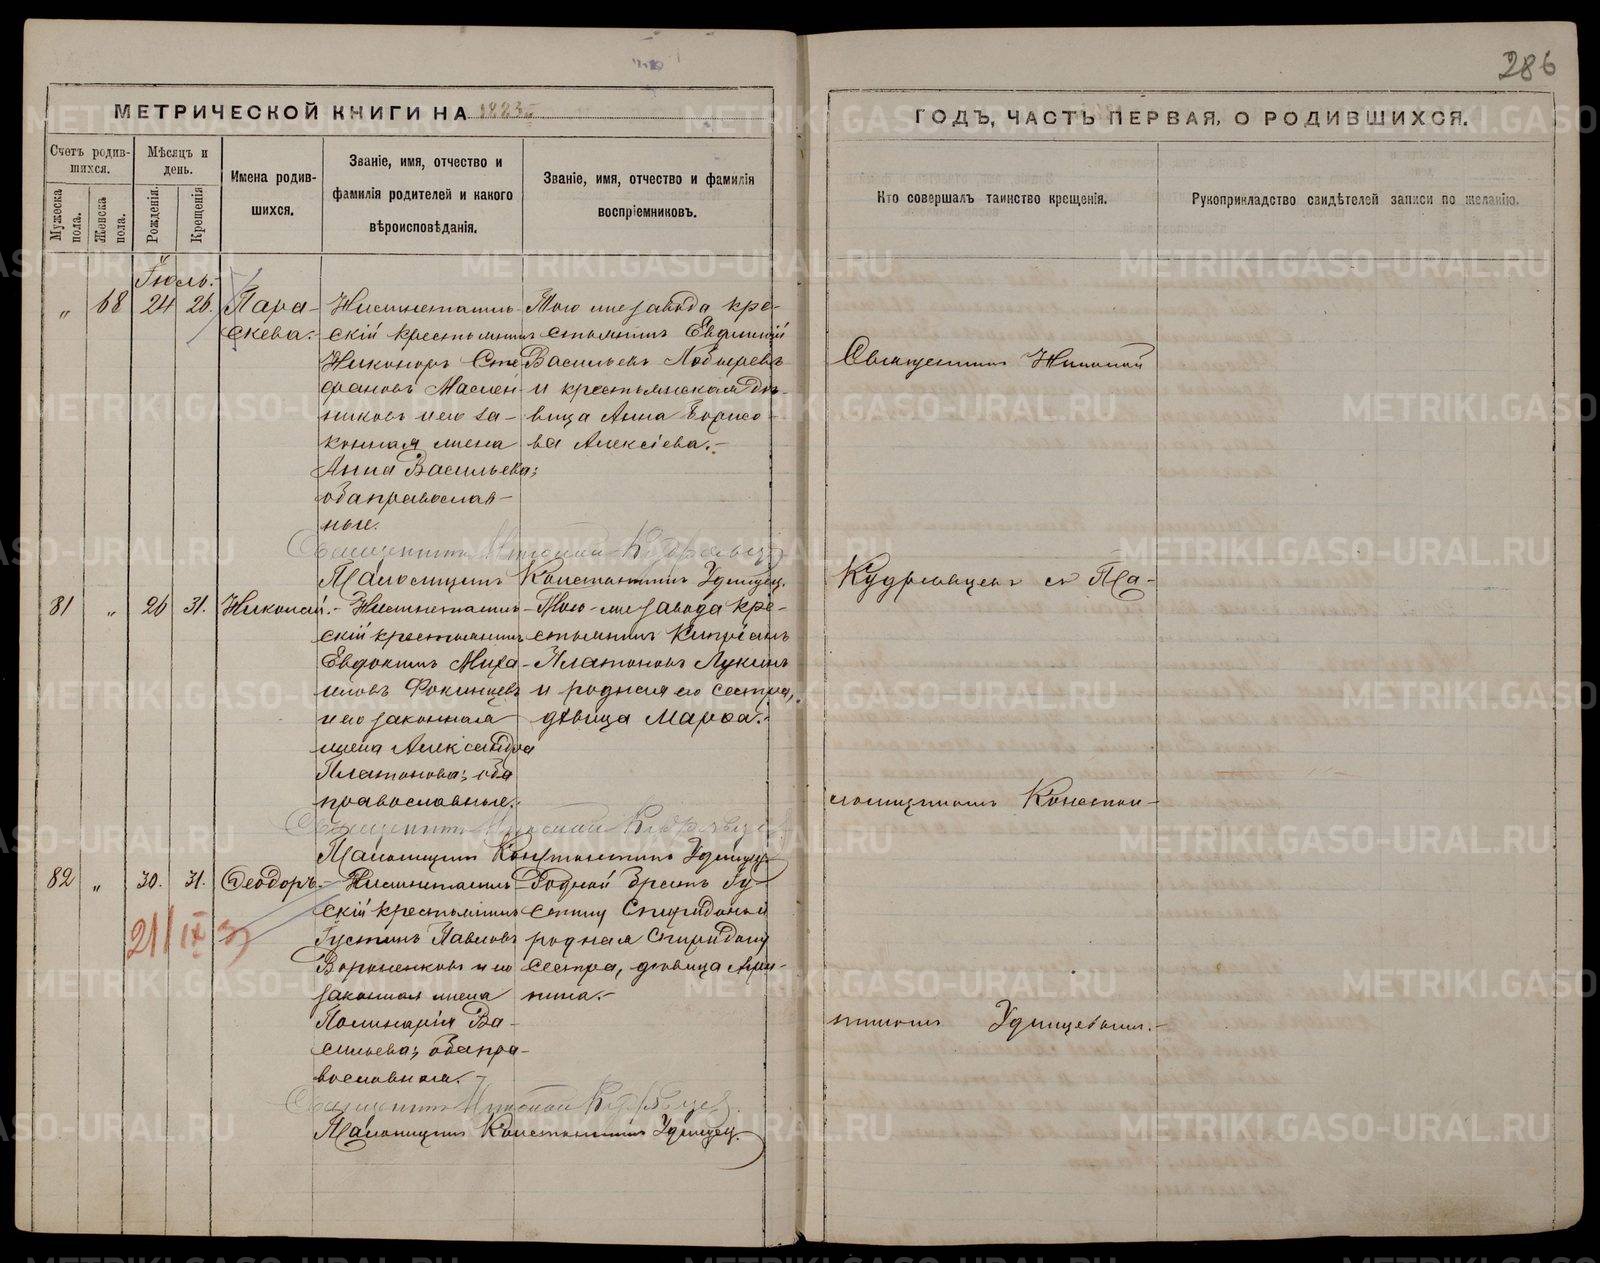 286
МЕТРИЧЕСКОЙ КНИГИ НА
ГОДЪ, ЧАСТЬ ПЕРВАЯ, О РОДИВШИХСЯ.
Счетъ родив-
шихся.
Мѣсяцъ и
день.
Мужеска
пола.
Женска
пола.
Рожденія.
Крещенія
Имена родив-
шихся.
Званіе, имя, отчество и
фамилія родителей и какого
вѣроисповѣданія.
Званіе, имя, отчество и фамилія
воспріемниковъ.
Кто совершалъ таинство крещенія.
Рукоприкладство свидѣтелей записи по желанію.
Іюль.
„ 68 24 26. Пара-
скева.
Нижнетагиль-
скій крестьянинъ
Никаноръ Сте-
фановъ Маслен-
никовъ и его за-
конная жена
Анна Васильева;
оба православ-
ные.
Того же завода кре-
стьянинъ Евдокий
Васильевъ
и крестьянская дѣ-
вица Анна Борисо-
ва Алексіева.-
Священникъ Николай Кудрявцевъ
Псаломщикъ Константинъ Удинцев.
81 „ 26 31. Николай.-
Нижнетагиль-
скій крестьянинъ
Евдокимъ Миха-
иловъ Фокинцевъ
и его законная
жена Александра
Платонова; оба
православные.
Того-же завода кре-
стьянинъ Кипріанъ
Платоновъ Лукинъ
и родная его сестра,
дѣвица Марѳа.-
Священникъ Николай Кудрявцев
Псаломщикъ Константинъ Удинцев
82 „ 30. 31. Ѳеодоръ.-
21/IX
Нижнетагиль-
скій крестьянинъ
Густинъ Павловъ
Вороненковъ и его
законная жена
Полинарія Ва-
сильева; оба пра-
вославные.-
Родной братъ Гу-
стину Спиридоній
родная Спиридону
сестра, дѣвица Ари-
нина.-
Священникъ Николай Кудрявцев.
Псаломщикъ Константинъ Удинцев.
Священникъ Николай
Кудрявцевъ съ Пса-
ломщикомъ Констан-
тиномъ Удинцевымъ.-
METRIKI.GASO-URAL.RU